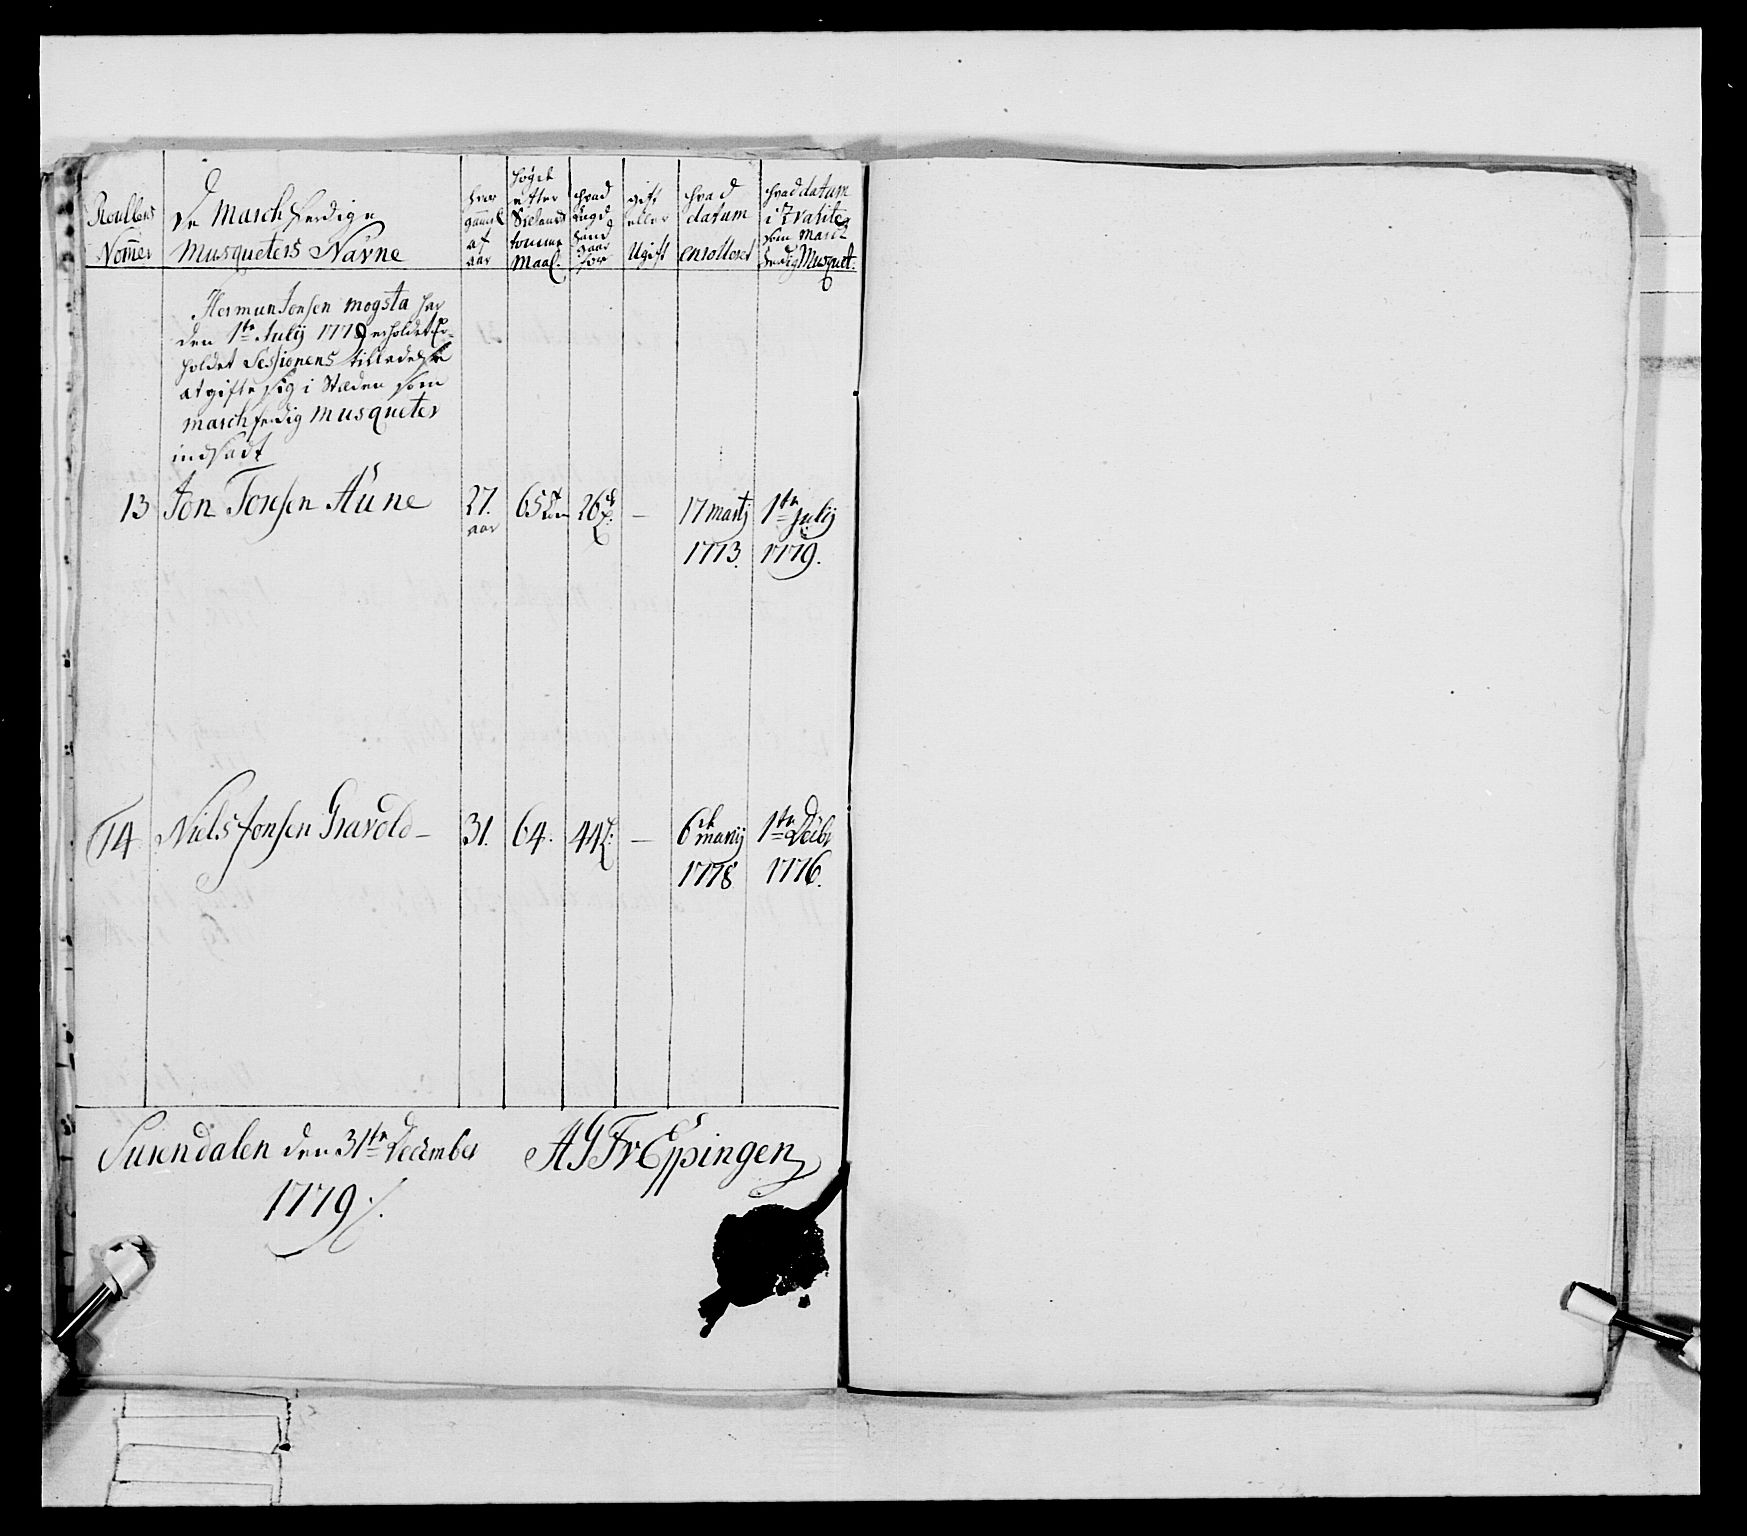 Roullens
Nom̄er
De March færdige
Musqueters Navne
hvor
gam̄el
af
aar
høyde
efter
Siellands
tomme
Maal.
hvad
Lægd
hand
staar
for
gift
eller
Ugift
hvad
datum
enrolleret
hvad datum
i qvalite
som march
færdig Musquet:
Herman Jonsen mogsta har
den 1te Julij 1779 erholdet Er-
holdet Sessionens tilladelse
at gifte sig i Stæden som
march færdig musqueter
indsadt
13 Jon Tonsen Aune 27. aar 65 26 — 17 martij 1773. 1te julij 1779.
14 Niels Jonsen Gravold — 31. 64. 44 — 6 marij 1778 1te Decbr 1776.
Surendalen den 31te December
1779
A G Fr Eppingen